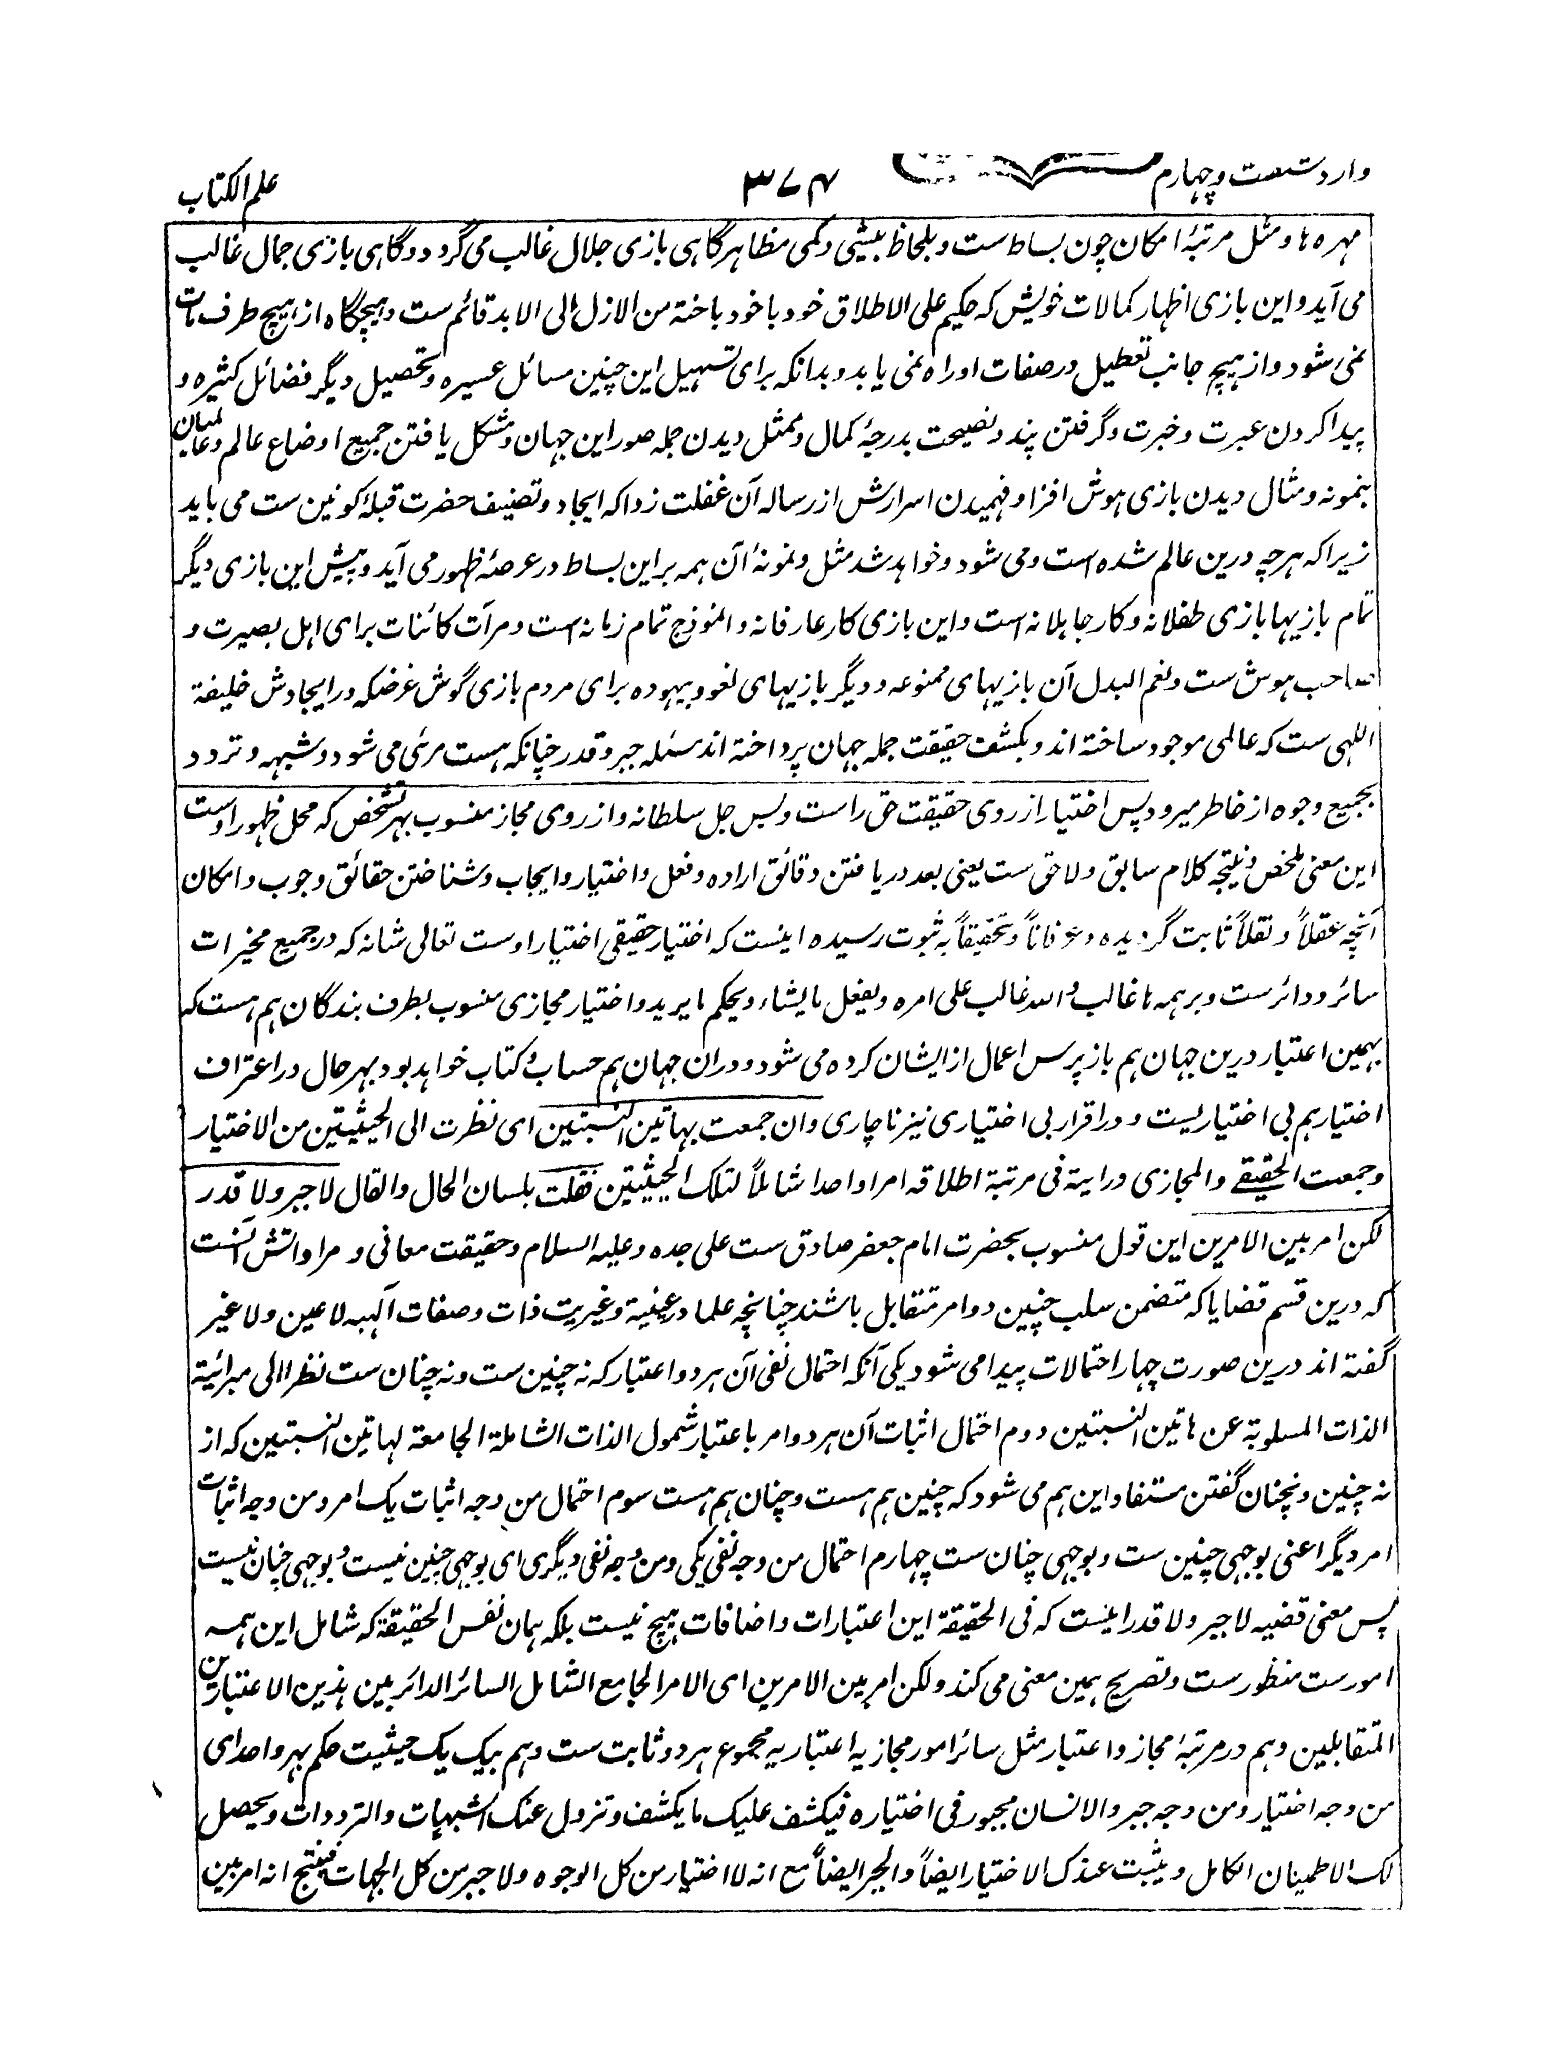 وارد شصت و چهارم
۳۷۴
علم الکتاب
مهره ها و مثل مرتبهٔ امکان چون بساط ست و بلحاظ بیشی و کمی مظاهر گاهی بازی جلال غالب می گردد و گاهی بازی جمال غالب
می آید و این بازی اظهار کمالات خویش که حکیم علی الاطلاق خود با خود باخته من الازل الی الابد قائم ست و هیچگاه از هیچ طرف مات
نمی شود و از هیچ جانب تعطیل در صفات او راه نمی یابد و بدانکه برای تسهیل این چنین مسائل عسیره و تحصیل دیگر فضائل کثیره و
پیدا کردن عبرت و خبرت و گرفتن پند و نصیحت بدرجهٔ کمال و ممثل دیدن جمله صور این جهان و مشکل یافتن جمیع اوضاع عالم و عالمیان
بنمونه و مثال دیدن بازی هوش افزا و فهمیدن اسرارش از رساله آن غفلت زدا که ایجاد و تصنیف حضرت قبلهٔ کونین ست می باید
زیرا که هر چه درین عالم شده است و می شود و خواهد شد مثل و نمونهٔ آن همه بر این بساط در عرصهٔ ظهور می آید و پیش این بازی دیگر
تمام بازیها بازی طفلانه و کار جاهلانه است و این بازی کار عارفانه و انموذج تمام زمانه است و مرآت کائنات برای اهل بصیرت و
صاحب هوش ست و نعم البدل آن بازیهای ممنوعه و دیگر بازیهای لغو و بیهوده برای مردم بازی گوش غرضکه در ایجادش خلیفة
اللهی ست که عالمی موجود ساخته اند و بکشف حقیقت جمله جهان پرداخته اند مسئله جبر و قدر چنانکه هست مرئی می شود و شبهه و تردد
بجمیع وجوه از خاطر میرود پس اختیار از روی حقیقت حق راست و بس جل سلطانه و از روی مجاز منسوب بهر شخص که محل ظهور اوست
این معنی ملخص و نتیجه کلام سابق و لاحق ست یعنی بعد دریافتن دقائق اراده و فعل و اختیار و ایجاب و شناختن حقائق وجوب و امکان
آنچه عقلاً و نقلاً ثابت گردیده و عرفاناً و تحقیقاً به ثبوت رسیده اینست که اختیار حقیقی اختیار اوست تعالی شانه که در جمیع مخیرات
سائر و دائر ست و بر همه ها غالب و الله غالب علی امره و یفعل ما یشاء و یحکم ما یرید و اختیار مجازی منسوب بطرف بندگان هم هست که
بهمین اعتبار درین جهان هم باز پرس اعمال از ایشان کرده می شود و دران جهان هم حساب و کتاب خواهد بود بهر حال در اعتراف
اختیار هم بی اختیاریست و در اقرار بی اختیاری نیز ناچاری وان جمعت بهاتین النسبتین ای نظرت الی الحیثیتین من الاختیار
وجمعت الحقیقے والمجازی ورایته فی مرتبة اطلاقه امرا واحدا شاملاً لتلک الحیثیتین فقلت بلسان الحال والقال لا جبر ولا قدر
لکن امر بین الامرین این قول منسوب بحضرت امام جعفر صادق ست علی جده و علیه السلام و حقیقت معانی و مراداتش آنست
که درین قسم قضایا که متضمن سلب چنین دو امر متقابل باشند چنانچه علما در عینیة و غیریت ذات و صفات آلهیه لا عین و لا غیر
گفته اند درین صورت چهار احتمالات پیدا می شود یکی آنکه احتمال نفی آن هر دو اعتبار که نه چنین ست و نه چنان ست نظرا الی مبرائیة
الذات المسلوبة عن هاتین النسبتین دوم احتمال اثبات آن هر دو امر باعتبار شمول الذات الشاملة الجامعة لهاتین النسبتین که از
نه چنین و نچنان گفتن مستفاد این هم می شود که چنین هم هست و چنان هم هست سوم احتمال من وجه اثبات یک امر و من وجه اثبات
امر دیگر اعنی بوجهی چنین ست و بوجهی چنان ست چهارم احتمال من وجه نفی یکی و من وجه نفی دیگری ای بوجهی چنین نیست و بوجهی چنان نیست
پس معنی قضیه لا جبر ولا قدر اینست که فی الحقیقة این اعتبارات و اضافات هیچ نیست بلکه همان نفس الحقیقة که شامل این همه
امورست منظور ست و تصریح همین معنی می کند ولکن امر بین الامرین ای الامر الجامع الشامل السائر الدائر بین هذین الاعتبارین
المتقابلین و هم در مرتبهٔ مجاز و اعتبار مثل سائر امور مجازیه اعتباریه مجموع هر دو ثابت ست و هم بیک یک حیثیت حکم بهر واحد ای
من وجه اختیار و من وجه جبر والانسان مجبور فی اختیاره فیکشف علیک ما یکشف وتزول عنک الشبهات والترددات ویحصل
لک الاطمینان الکامل ویثبت عندک الاختیار ایضاً والجبر ایضاً مع انه لا اختیار من کل الوجوه ولا جبر من کل الجهات فینتج انه امر بین